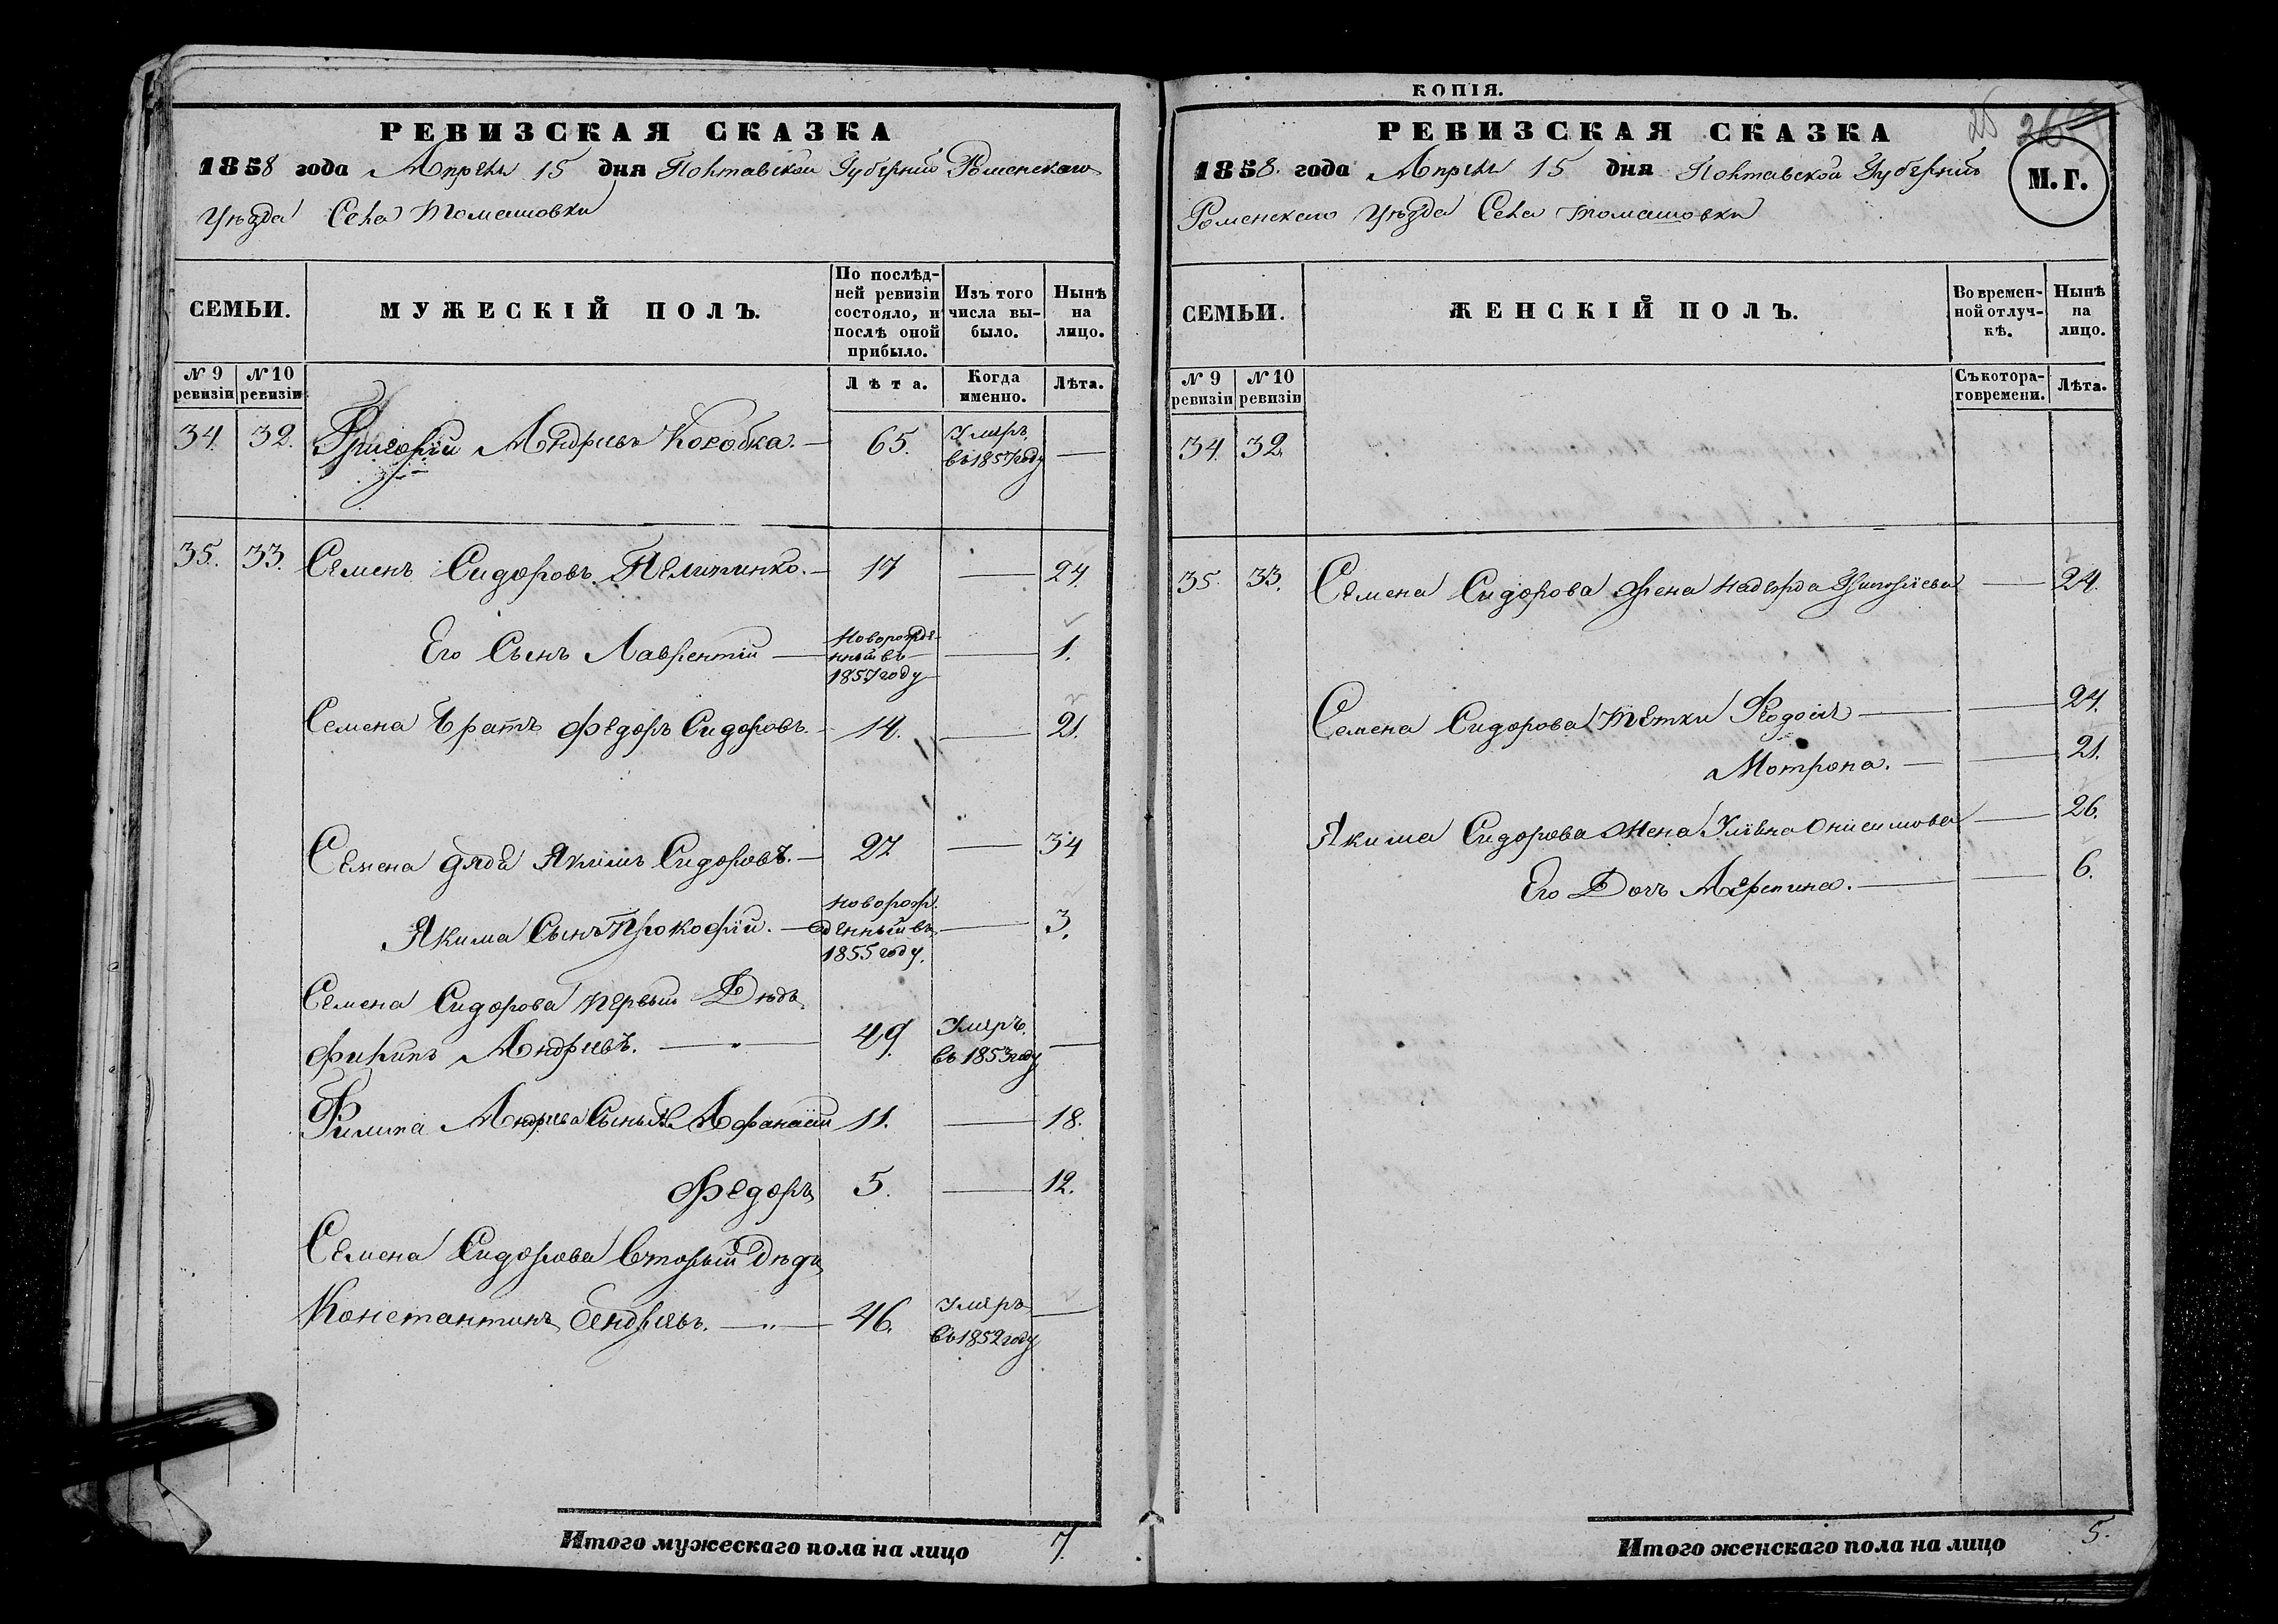 КОПІЯ.
РЕВИЗСКАЯ СКАЗКА
1858 года Апреля 15 дня Полтавской Губерніи Роменскаго
Уѣзда Села Томашовки
СЕМЬИ.
МУЖЕСКІЙ ПОЛЪ.
По послѣд-
ней ревизіи
состояло, и
послѣ оной
прибыло.
Изъ того
числа вы-
было.
Нынѣ
на
лицо.
№ 9 ревизіи
№ 10 ревизіи
Лѣта.
Когда именно.
Лѣта.
34. 32. Григорій Андріевъ Коробка. — 65. Умеръ въ 1857 году —
35. 33. Семенъ Сидоровъ — 17 — 24.
Его Сынъ Лаврентій — Новорожде-
нный въ
1857 году — 1.
Семена Братъ Федоръ Сидоровъ. — 14. — 21.
Семена дядя Якимъ Сидоровъ. — 27 — 34
Якима Сынъ Прокофій. — Новорож-
денный въ
1855 году. — 3.
Семена Сидорова первый Дѣдъ
Филипъ Андріевъ. — 49. Умеръ въ 1853 году —
Филипа Андріева Сыны Афанасій 11. — 18.
Федоръ 5. — 12.
Семена Сидорова Вторый Дѣдъ
Константинъ Андріевъ. — 46. Умеръ въ 1852 году —
Итого мужескаго пола на лицо 7.
РЕВИЗСКАЯ СКАЗКА
25 26
1858. года Апреля 15 дня Полтавской Губерніи
М. Г.
Роменскаго Уѣзда Села Томашовки
СЕМЬИ.
ЖЕНСКІЙ ПОЛЪ.
Во времен-
ной отлуч-
кѣ.
Нынѣ
на
лицо.
№ 9 ревизіи
№ 10 ревизіи
Съ котора-
го времени.
Лѣта.
34. 32.
35. 33. Семена Сидорова жена Надежда Григоріева — 24.
Семена Сидорова Тетки Феодосія — 24.
Мотрона. — 21.
Якима Сидорова жена Уліяна Онисимова — 26.
Его Дочь — 6.
Итого женскаго пола на лицо 5.